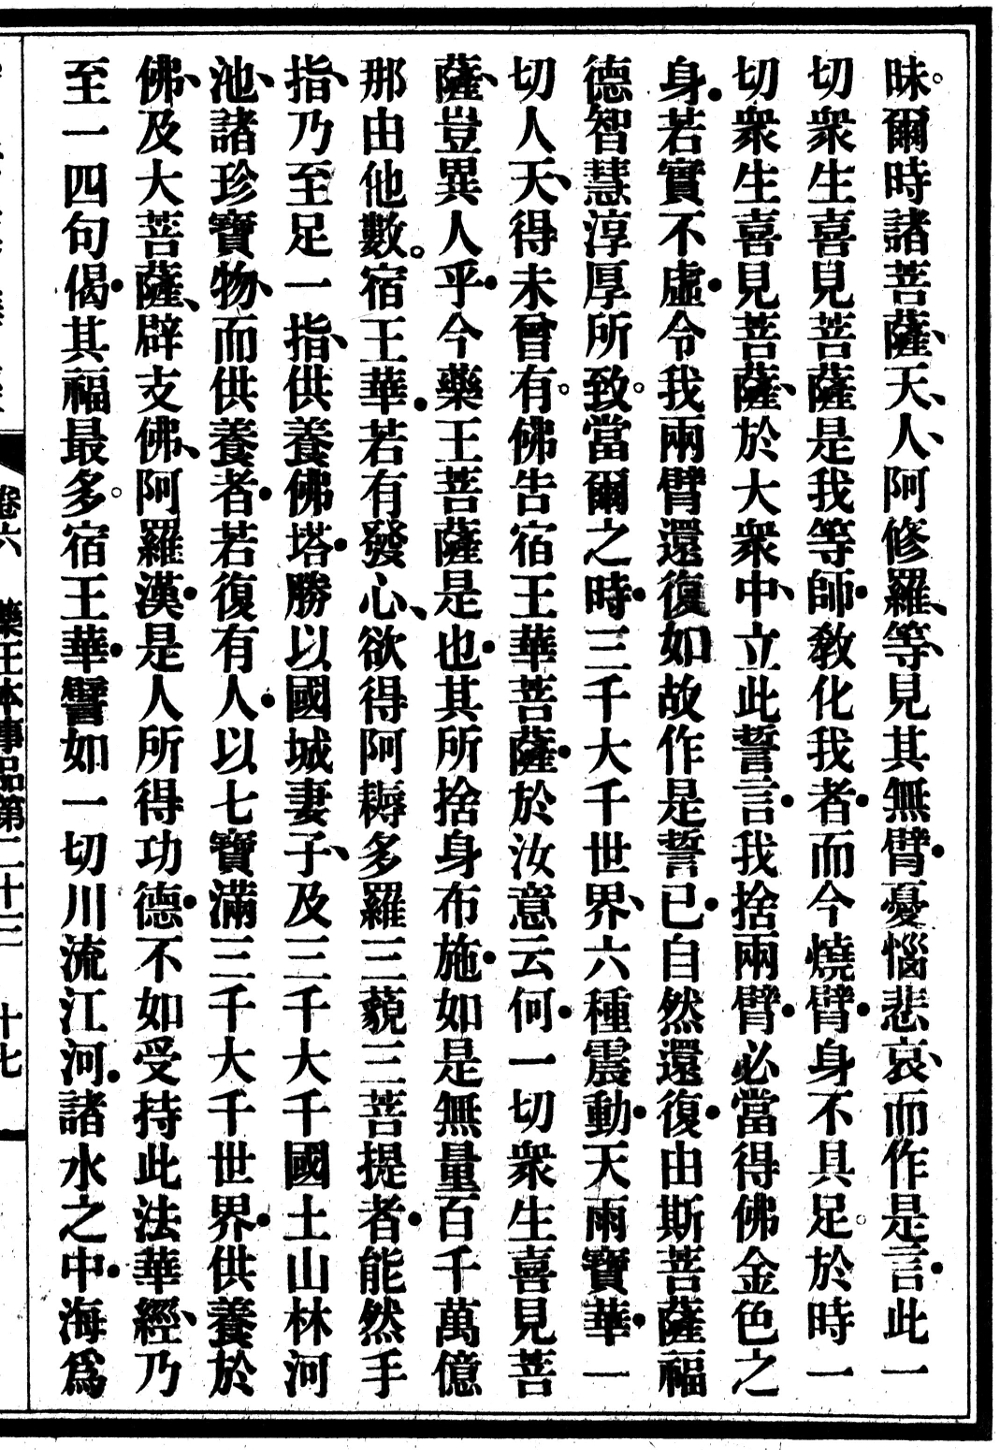 昧。爾時諸菩薩、天、人、阿修羅、等、見其無臂•憂惱悲哀、而作是言•此一
切衆生喜見菩薩是我等師•教化我者•而今燒臂•身不具足。於時一
切衆生喜見菩薩、於大衆中、立此誓言•我捨兩臂•必當得佛金色之
身•若實不虛•令我兩臂還復如故作是誓已•自然還復•由斯菩薩福
德智慧淳厚所致。當爾之時•三千大千世界、六種震動•天雨寶華•一
切人天、得未曾有。佛告宿王華菩薩•於汝意云何•一切衆生喜見菩
薩、豈異人乎•今藥王菩薩是也•其所捨身布施•如是無量百千萬億
那由他數。宿王華•若有發心、欲得阿耨多羅三藐三菩提者•能然手
指、乃至足一指、供養佛塔•勝以國城妻子、及三千大千國土山林河
池、諸珍寶物、而供養者•若復有人•以七寶滿三千大千世界•供養於
佛、及大菩薩、辟支佛、阿羅漢•是人所得功德•不如受持此法華經、乃
至一四句偈•其福最多。宿王華•譬如一切川流江河•諸水之中•海爲
卷六 藥王本事品第二十三 十七